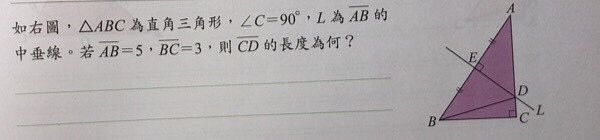 如右圖，△ABC 為直角三角形，∠C=90°，L 為 A̅B̅ 的
中垂線。若 A̅B̅=5，B̅C̅=3，則 C̅D̅ 的長度為何？
A
E
D
B
C
L